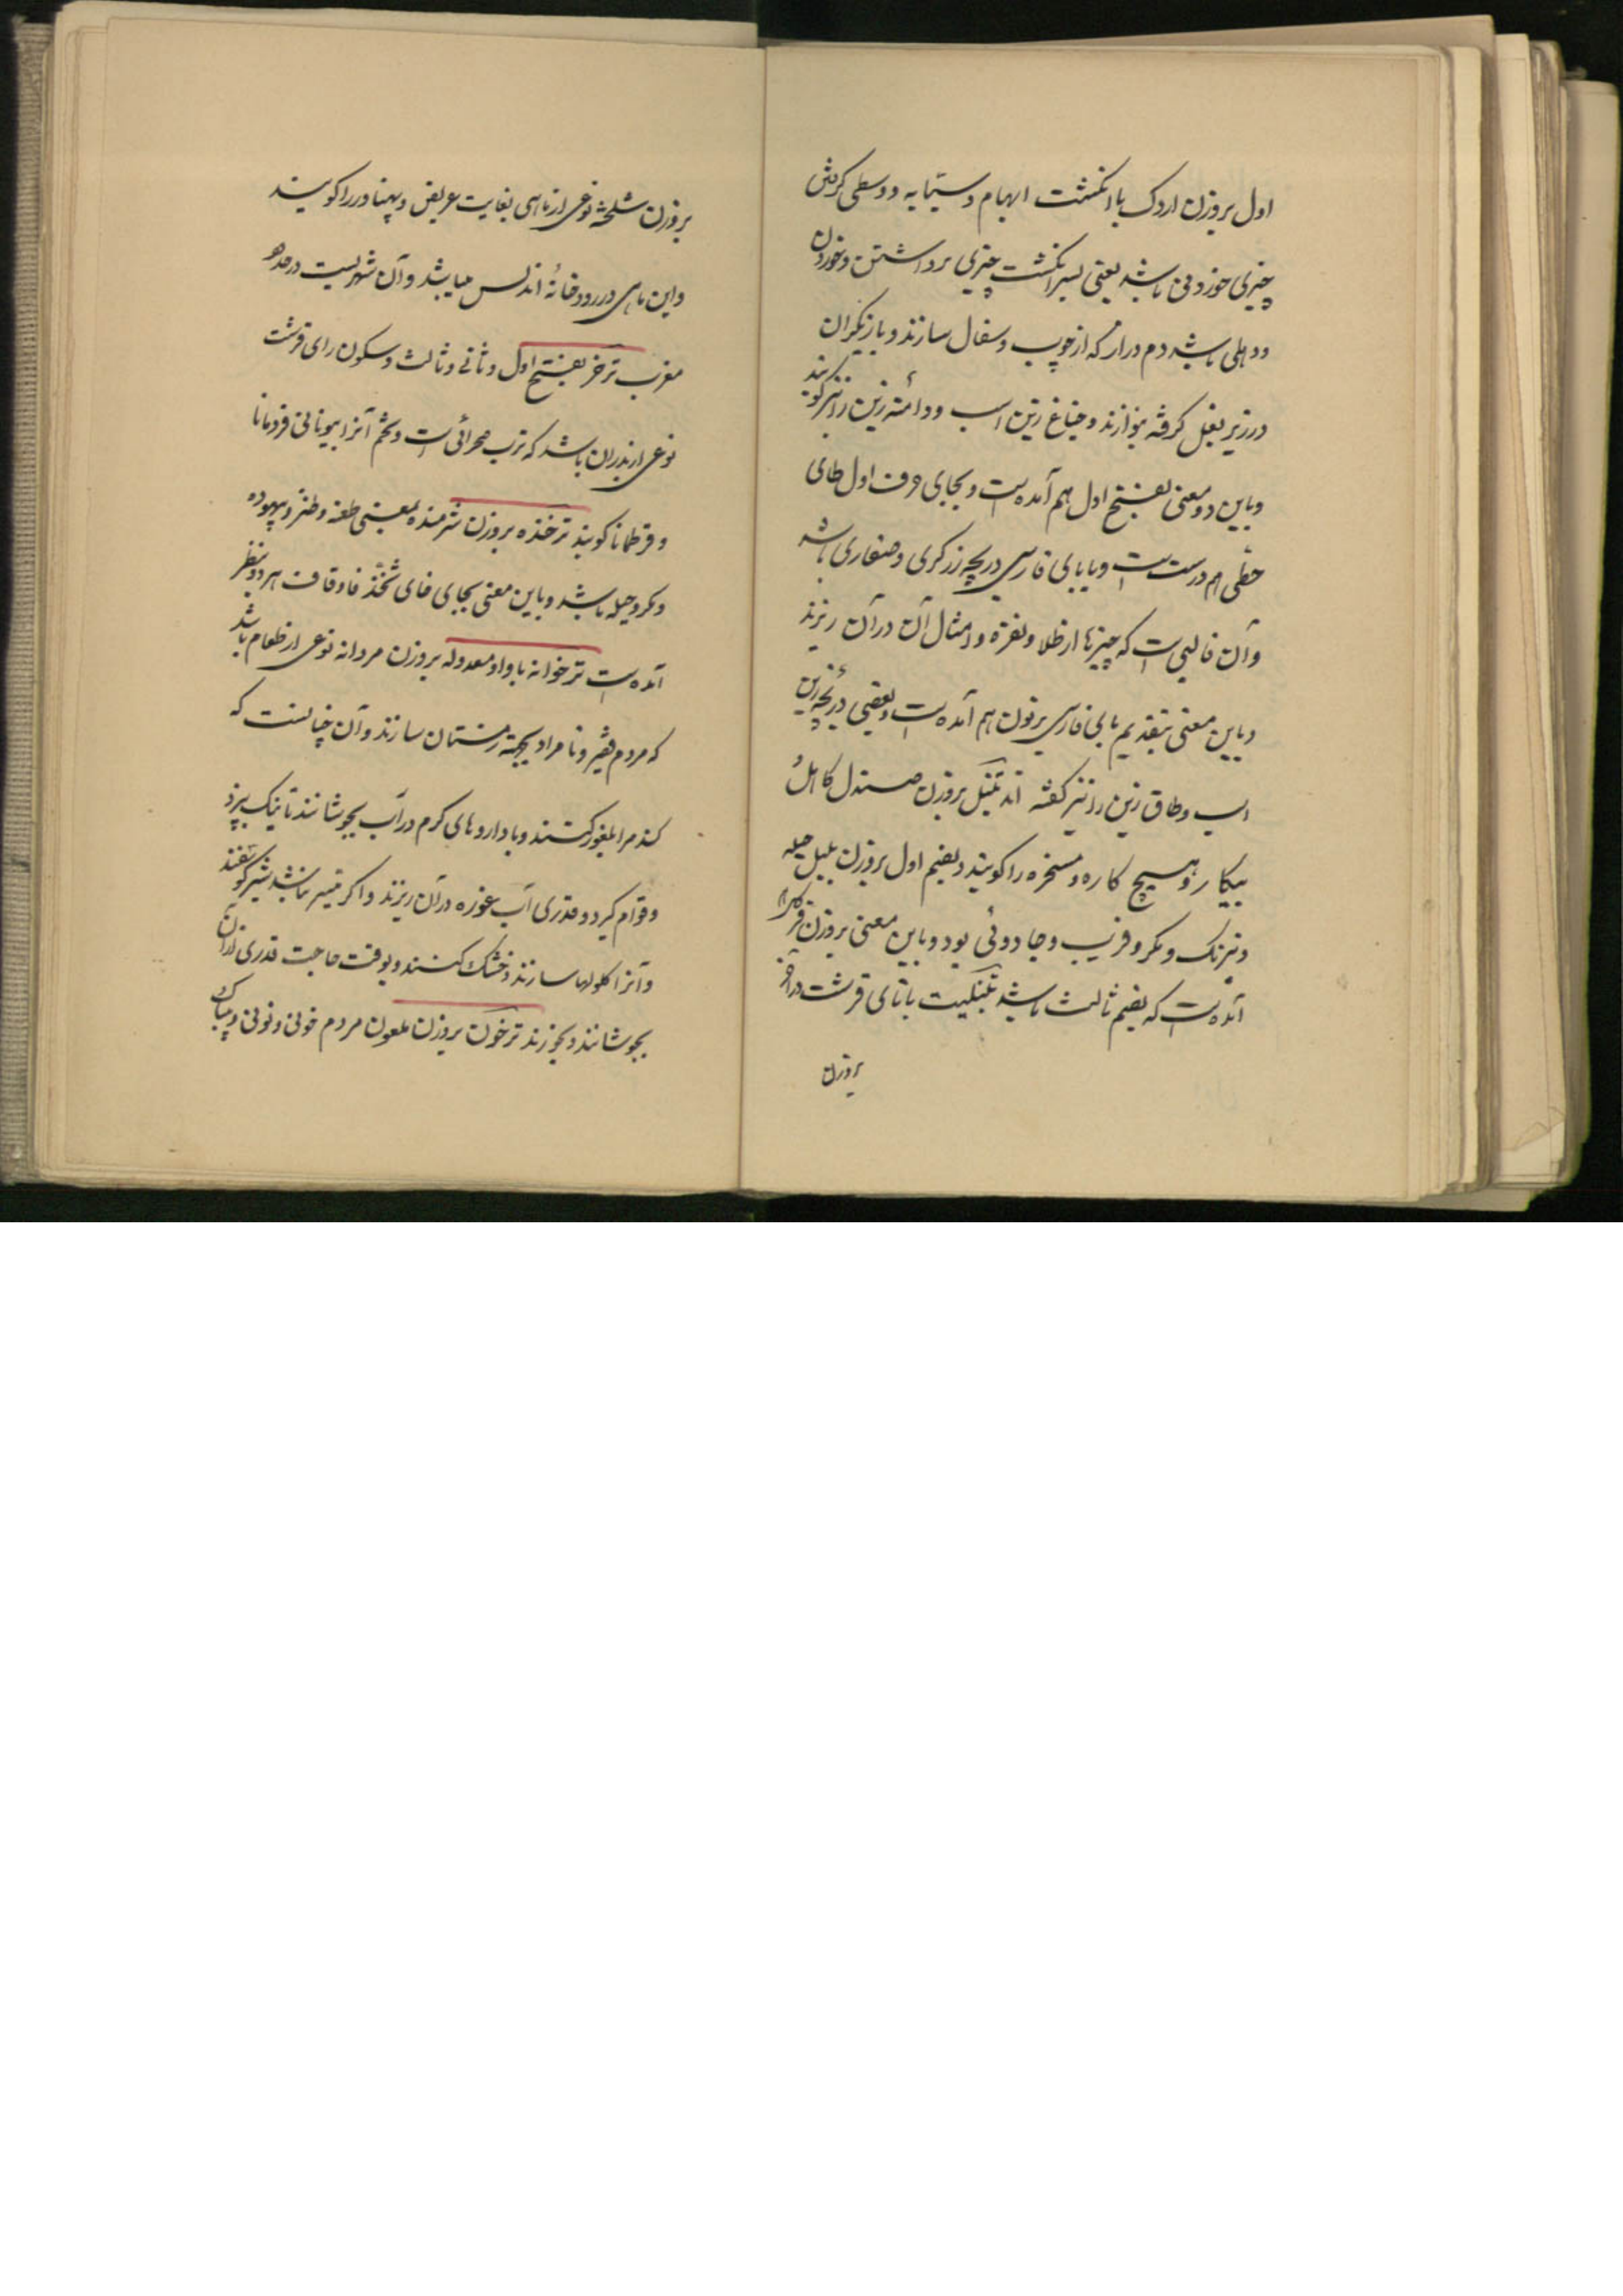 اول بروزن اردک با انگشت ابهام و سبابه و وسطی گرفتن
چیزی خوردنی باشد یعنی بسر انگشت چیزی برداشتن و خوردن
و دهلی باشد دم دراز که از چوب و سفال سازند و بازیگران
در زیر بغل گرفته بنوازند و جناغ زین اسب و دامنه زین را نیز گویند
و باین دو معنی بفتح اول هم آمده است و بجای حرف اول طای
حطی هم درست است و با بای فارسی دریچه زرگری و صفاری باشد
و آن قالبی است که چیزها از طلا و نقره و امثال آن در آن ریزند
و باین معنی بتقدیم بای فارسی بر نون هم آمده است و بعضی دریچه زین
اسب و طاق زین را نیز گفته اند تنبل بروزن صندل کاهل و
بیکار و هیچ کاره و مسخره را گویند و بضم اول بروزن بلبل حیله
و نیرنگ و مکر و فریب و جادوئی بود و باین معنی بروزن
آمده است که بضم ثالث باشد تنبلیت با تای قرشت در آخر
بروزن
بروزن شلخته نوعی از ماهی بغایت عریض و پهناور را گویند
و این ماهی در رودخانهٔ اندلس میباشد و آن شهریست در حد
مغرب ترخر بفتح اول و ثانی و ثالث و سکون رای قرشت
نوعی از باشد که ترب صحرائی است و تخم آنرا بیونانی فردمانا
و قرطمانا گویند ترخنده بروزن شرمنده بمعنی طعنه و طنز و بیهوده
و مکر و حیله باشد و باین معنی بجای خای ثخذ فا و قاف هر دو بنظر
آمده است ترخوانه با واو معدوله بروزن مردانه نوعی از طعام باشد
که مردم فقیر و نامراد بجهته زمستان سازند و آن چنانست که
گندم را بلغور کنند و با داروهای گرم در آب بجوشانند تا نیک بپزد
و قوام گیرد و قدری آب غوره در آن ریزند و اگر میسر نباشد شیر گوسفند
و آنرا گلولها سازند و خشک کنند و بوقت حاجت قدری از آن
بجوشانند و بخورند ترخون بروزن ملعون مردم خونی و دونی و بیباک